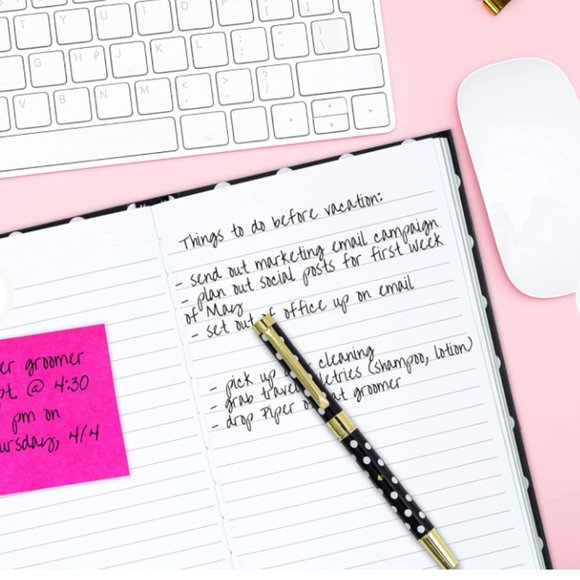 er groomer
pt. @ 4:30
pm on
ursday, 4/4
Things to do before vacation:
- send out marketing email campaign
- plan out social posts for first week
of May
- set out office up on email
- pick up cleaning
- grab (shampoo, lotion)
- drop Piper at groomer